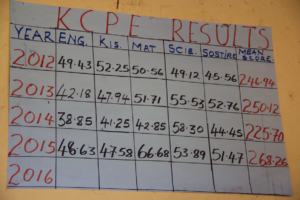 KCPE RESULTS
YEAR ENG. KIS. MAT SCIE. SOST/RE MEAN SCORE
2012 49.43 52.25 50.56 49.12 45.56 246.94
2013 42.18 47.94 51.71 55.53 52.76 250.12
2014 38.85 41.25 42.85 58.30 44.45 225.70
2015 48.63 47.58 66.68 53.89 51.47 268.26
2016